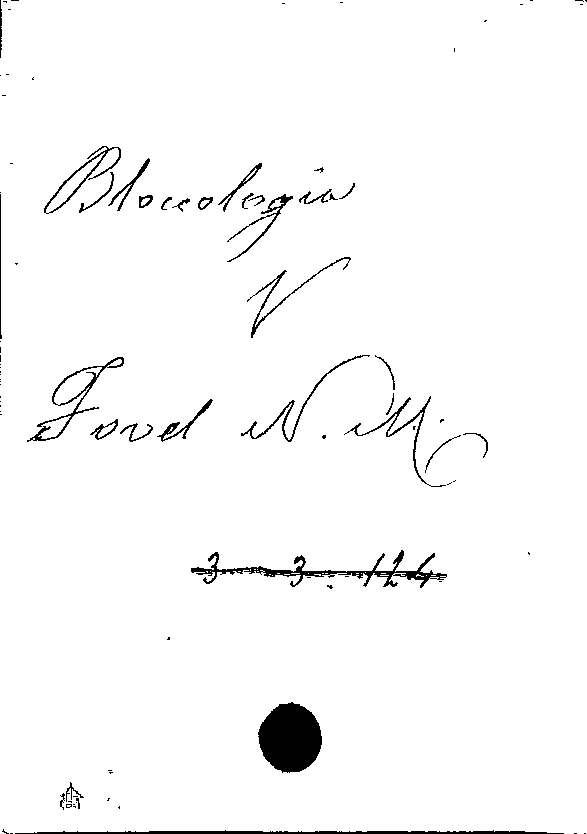 Bloccologia
V
Fovel N. M.
3 3. 124